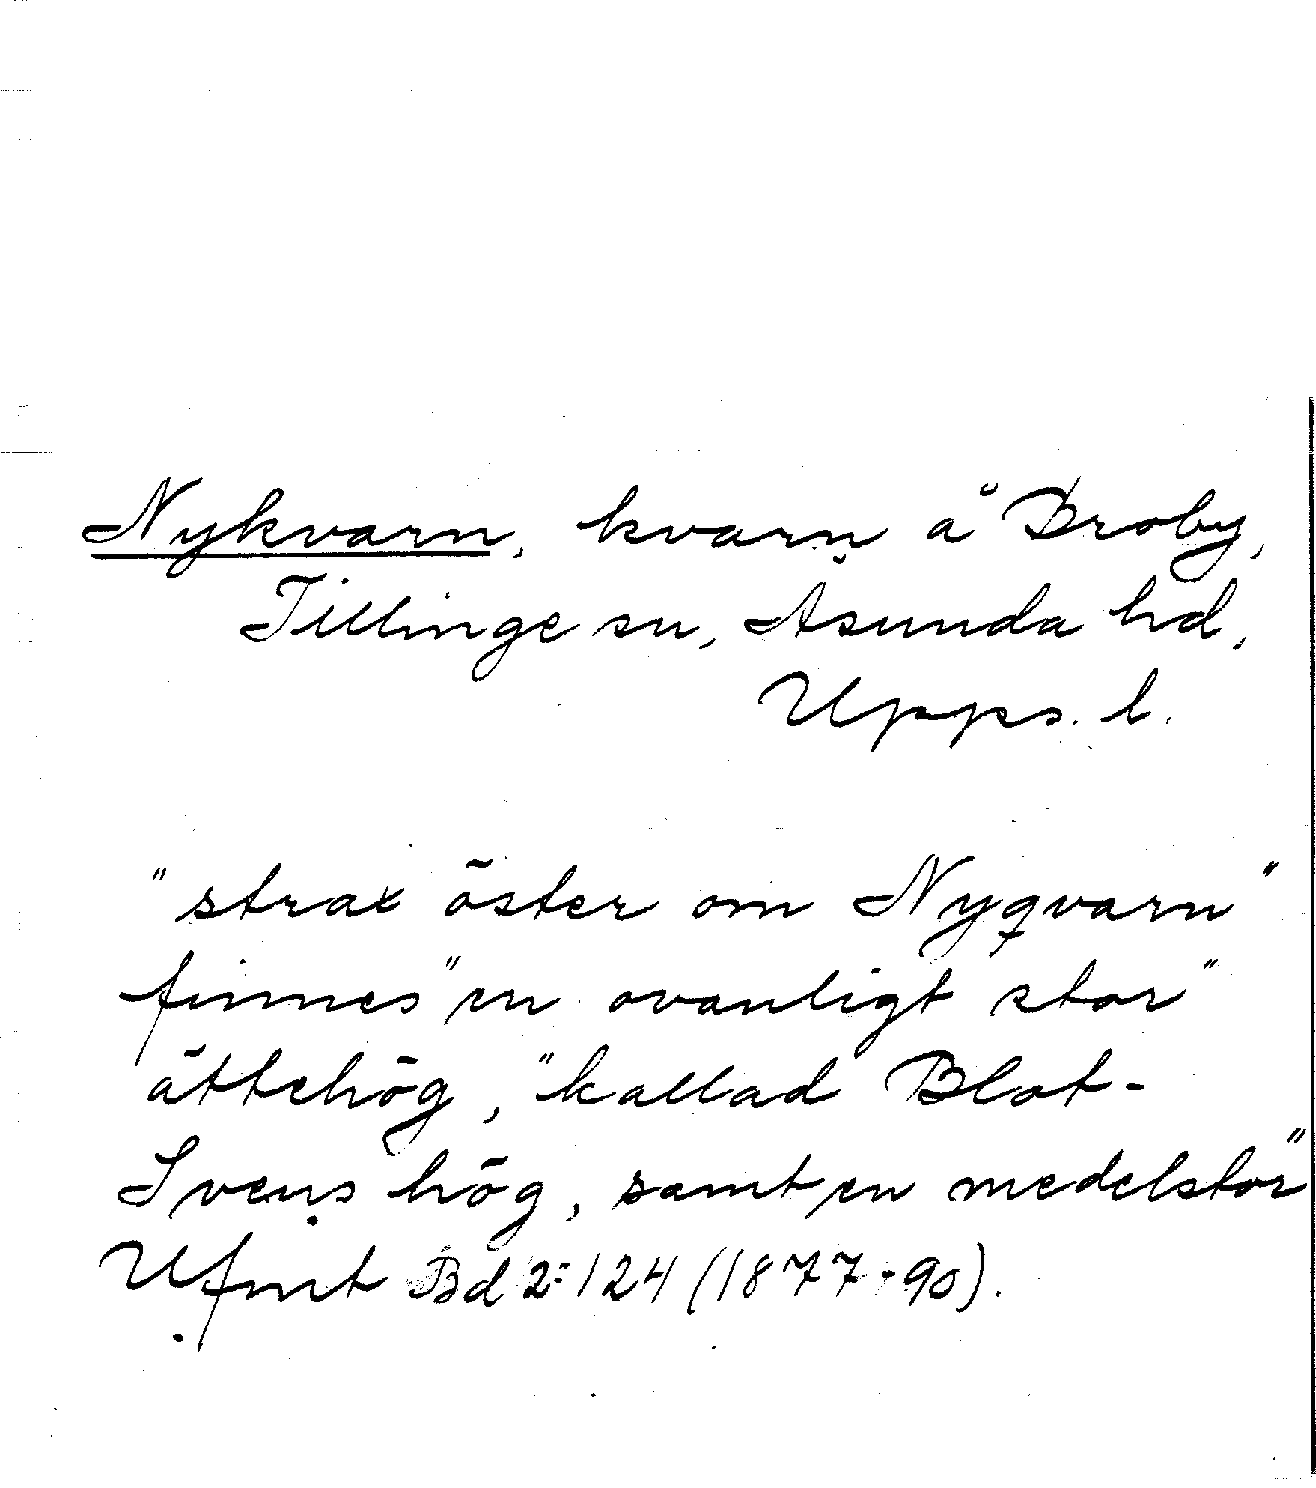 Nykvarn, kvarn å Broby,
Tillinge sn, Åsunda hd,
Upps. l.
"strax öster om Nyqvarn"
finnes "en ovanligt stor"
ättehög, "kallad Blot-
Svens hög, samt en medelstor"
Ufmt Bd 2:124 (1877-90).